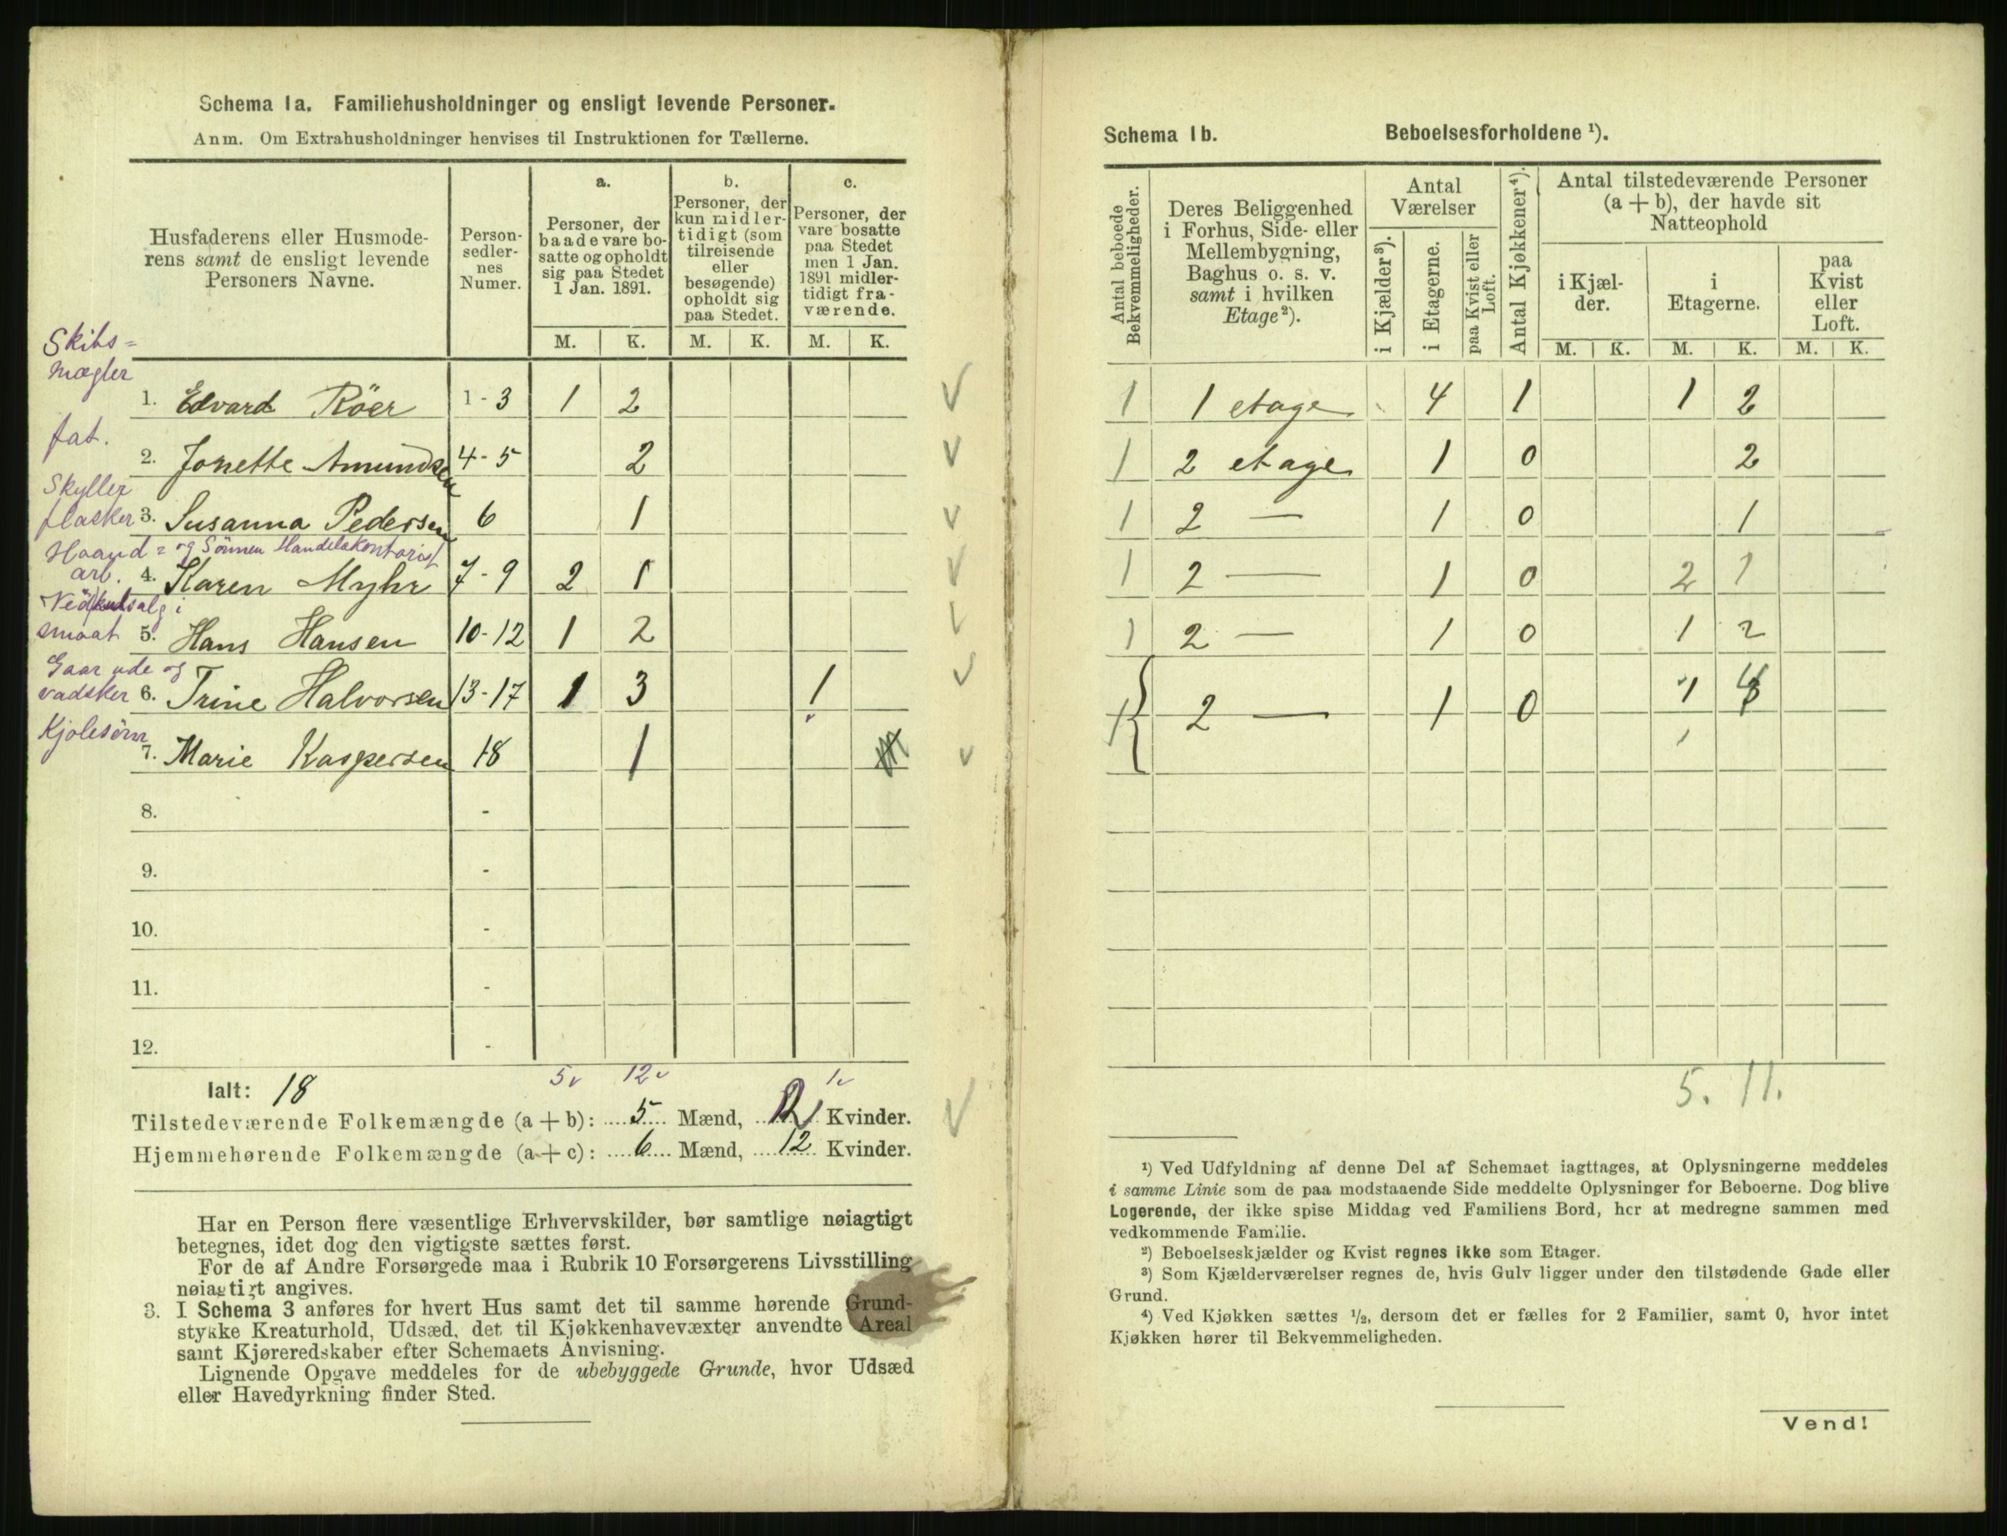 Schema 1a. Familiehusholdninger og ensligt levende Personer.
Anm. Om Extrahusholdninger henvises til Instruktionen for Tællerne.
Husfaderens eller Husmode-
rens samt de ensligt levende
Personers Navne.
Person-
sedler-
nes
Numer.
a.
Personer, der
baade vare bo-
satte og opholdt
sig paa Stedet
1 Jan. 1891.
b.
Personer, der
kun midler-
tidigt (som
tilreisende
eller
besøgende)
opholdt sig
paa Stedet.
c.
Personer, der
vare bosatte
paa Stedet
men 1 Jan.
1891 midler-
tidigt fra-
værende.
M. K. M. K. M. K.
Skibs=
mægler
1. Edvard Röer 1-3 1 2
fat.
2. Jonette Amundsen 4-5 2
Skyller
flasker 3. Susanna Pedersen 6 1
Haand= og Sönnen Handelskontorist
arb. 4. Karen Myhr 7-9 2 1
smaat 5. Hans Hansen 10-12 1 2
Gaar ude og
vadsker 6. Trine Halvorsen 13-17 1 3 1
Kjolesöm
7. Marie Kaspersen 18 1
8. -
9. -
10. -
11. -
12. -
5 12 1
Ialt: 18
Tilstedeværende Folkemængde (a + b): 5 Mænd, Kvinder.
Hjemmehørende Folkemængde (a + c): 6 Mænd, 12 Kvinder.
Har en Person flere væsentlige Erhvervskilder, bør samtlige nøiagtigt
betegnes, idet dog den vigtigste sættes først.
For de af Andre Forsørgede maa i Rubrik 10 Forsørgerens Livsstilling
nøiagtigt angives.
3. I Schema 3 anføres for hvert Hus samt det til samme hørende Grund-
stykke Kreaturhold, Udsæd, det til Kjøkkenhavevæxter anvendte Areal
samt Kjøreredskaber efter Schemaets Anvisning.
Lignende Opgave meddeles for de ubebyggede Grunde, hvor Udsæd
eller Havedyrkning finder Sted.
Schema 1b. Beboelsesforholdene ¹).
Antal beboede
Bekvemmeligheder.
Deres Beliggenhed
i Forhus, Side- eller
Mellembygning,
Baghus o. s. v.
samt i hvilken
Etage²).
Antal
Værelser
i Kjælder³).
i Etagerne.
paa Kvist eller
Loft.
Antal Kjøkkener⁴).
Antal tilstedeværende Personer
(a + b), der havde sit
Natteophold
i Kjæl-
der.
i
Etagerne.
paa
Kvist
eller
Loft.
M. K. M. K. M. K.
1 1 etage 4 1 1 2
1 2 etage 1 0 2
1 2 — 1 0 1
1 2 — 1 0 2 1
1 2 — 1 0 1 2
1 2 — 1 0 1
5. 11.
¹) Ved Udfyldning af denne Del af Schemaet iagttages, at Oplysningerne meddeles
i samme Linie som de paa modstaaende Side meddelte Oplysninger for Beboerne. Dog blive
Logerende, der ikke spise Middag ved Familiens Bord, her at medregne sammen med
vedkommende Familie.
²) Beboelseskjælder og Kvist regnes ikke som Etager.
³) Som Kjælderværelser regnes de, hvis Gulv ligger under den tilstødende Gade eller
Grund.
⁴) Ved Kjøkken sættes ½, dersom det er fælles for 2 Familier, samt 0, hvor intet
Kjøkken hører til Bekvemmeligheden.
Vend!